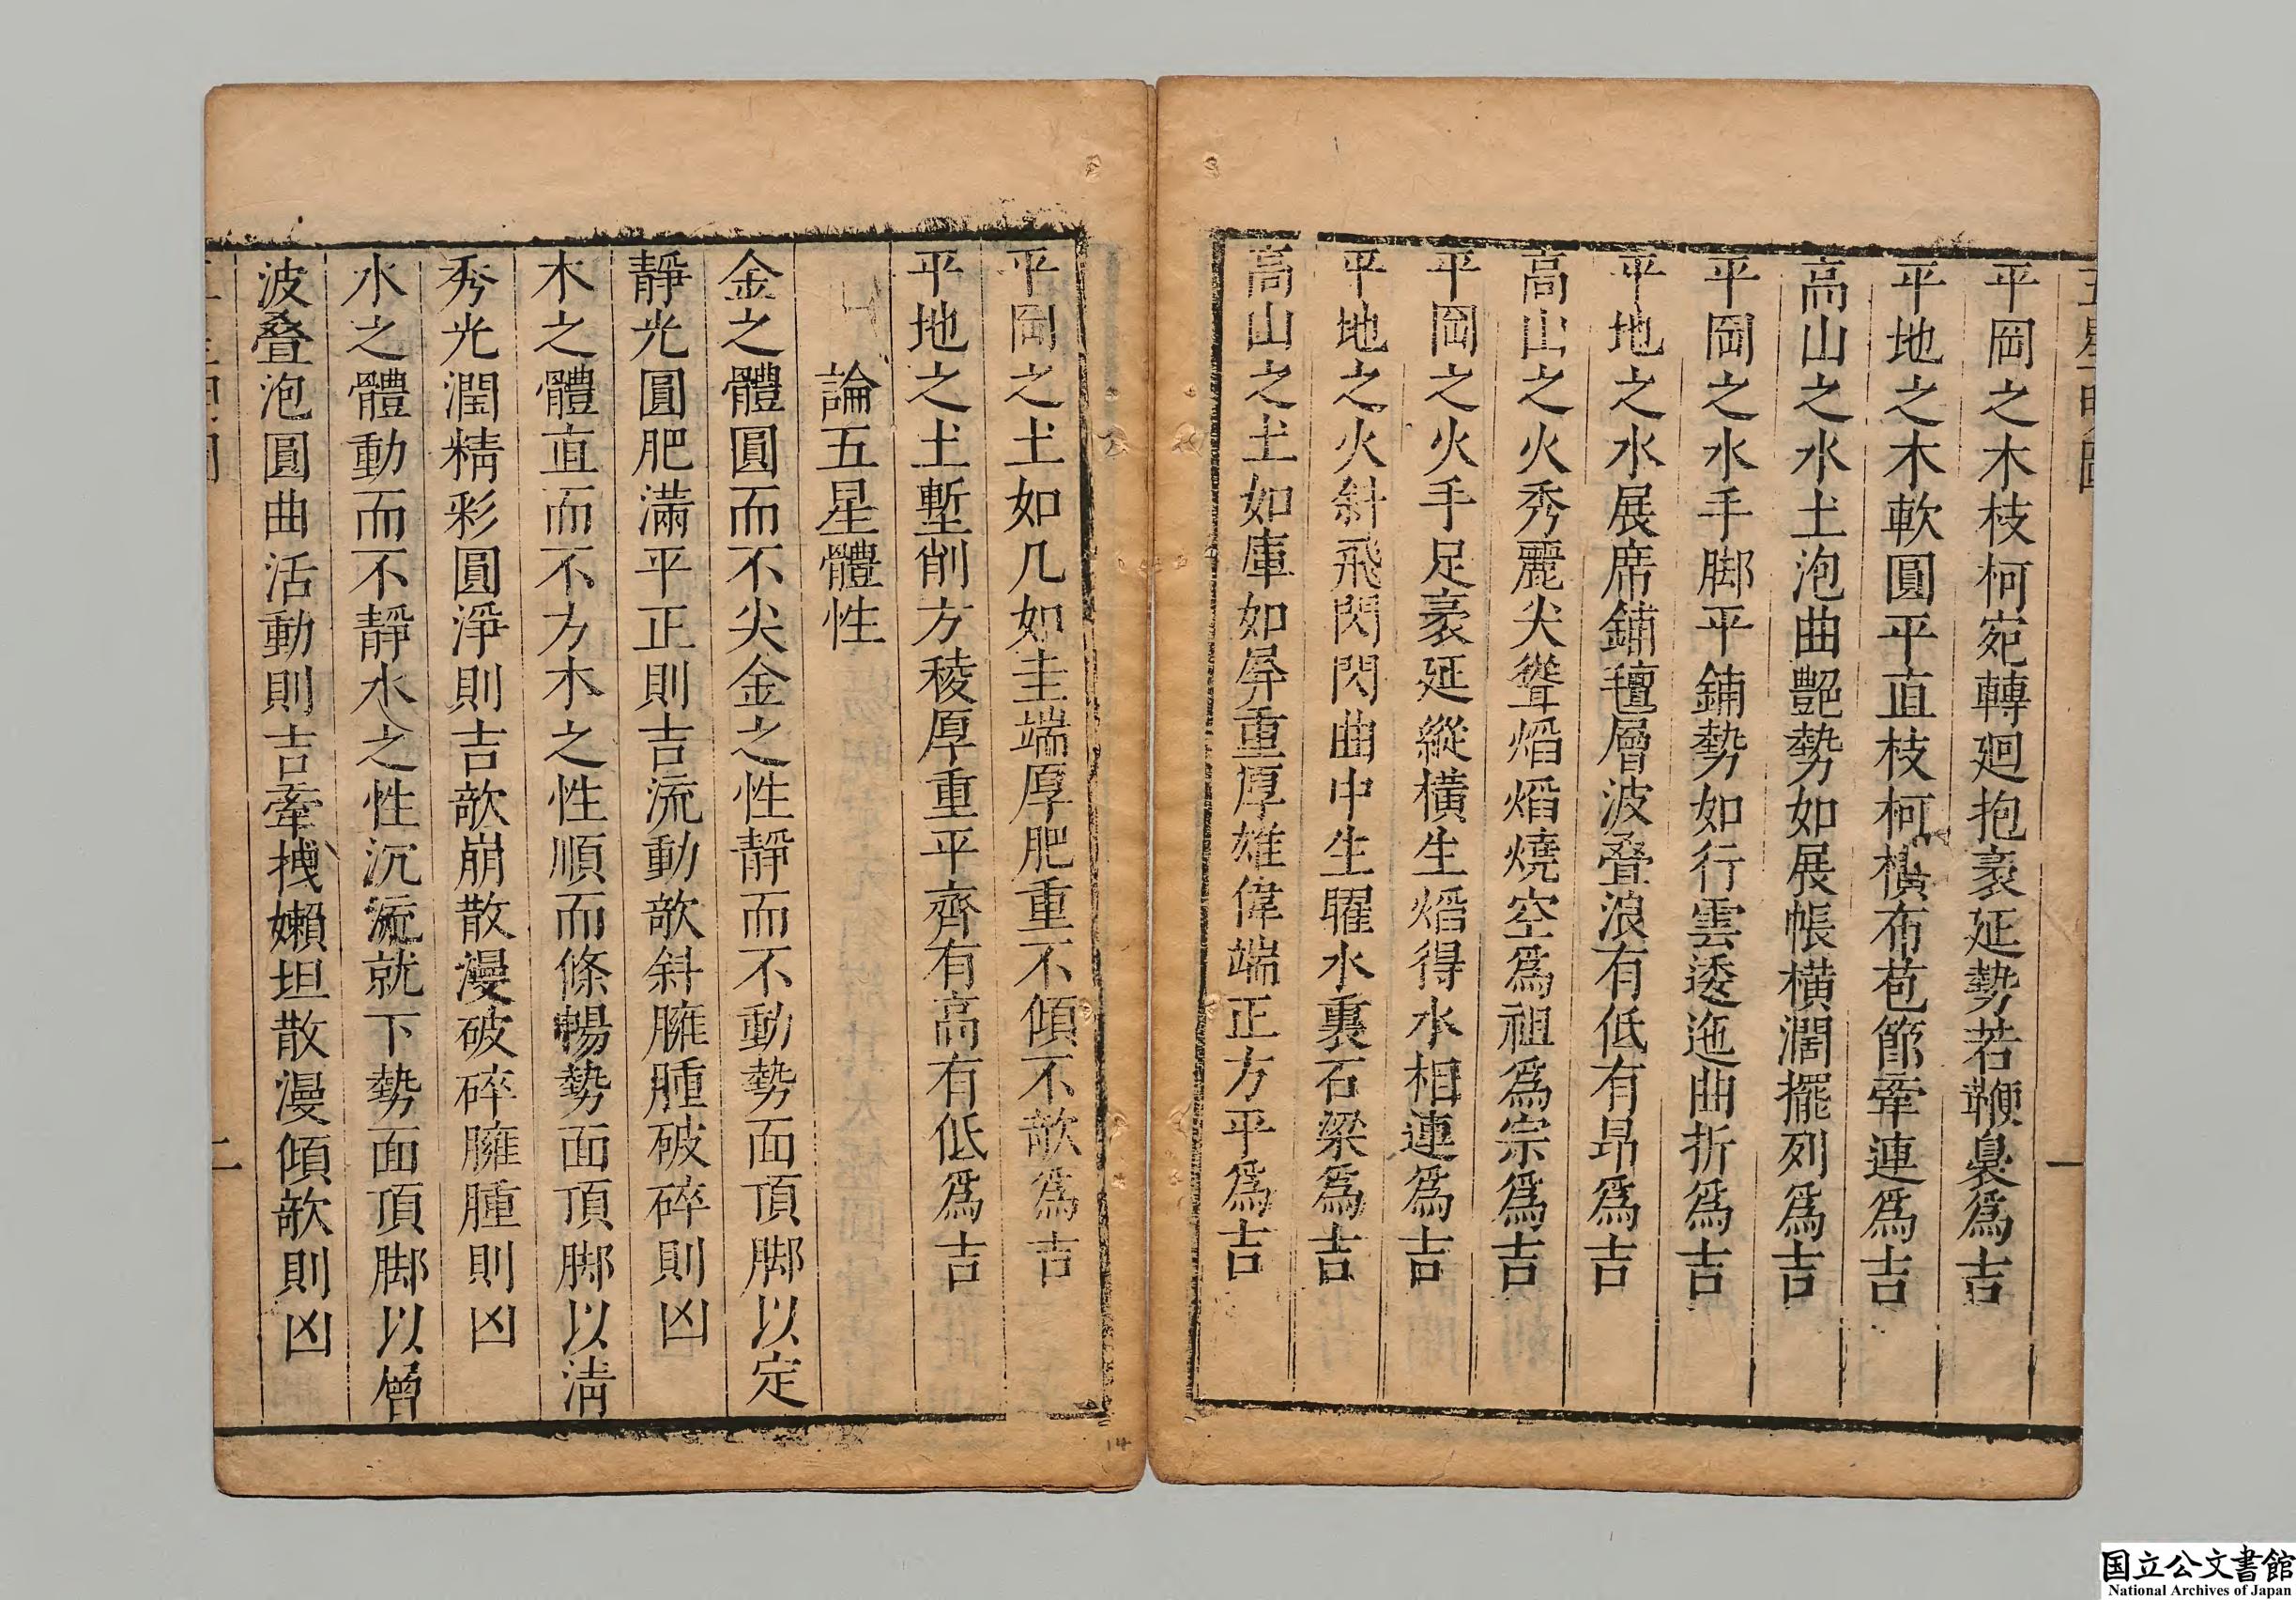 平岡之木枝柯宛轉廻抱裹延勢若鞭裊爲吉
平地之木軟圓平直枝柯橫布苞節牽連爲吉
高山之水土泡曲艷勢如展帳橫濶擺列爲吉
平岡之水手脚平鋪勢如行雲逶迤曲折爲吉
平地之水展席鋪氊層波叠浪有低有昂爲吉
高山之火秀麗尖聳熖熖燒空爲祖爲宗爲吉
平岡之火手足裹延縱橫生熖得水相連爲吉
平地之火斜飛閃閃曲中生曜水裏石梁爲吉
高山之土如庫如屏重厚雄偉端正方平爲吉
平岡之土如几如圭端厚肥重不傾不欹爲吉
平地之土塹削方稜厚重平齊有高有低爲吉
論五星體性
金之體圓而不尖金之性靜而不動勢面頂脚以定
靜光圓肥滿平正則吉流動欹斜臃腫破碎則凶
木之體直而不方木之性順而條暢勢面頂脚以淸
秀光潤精彩圓淨則吉欹崩散漫破碎臃腫則凶
水之體動而不靜水之性沉流就下勢面頂脚以層
波叠泡圓曲活動則吉牽拽嬾坦散漫傾欹則凶
二
14
国立公文書館
National Archives of Japan